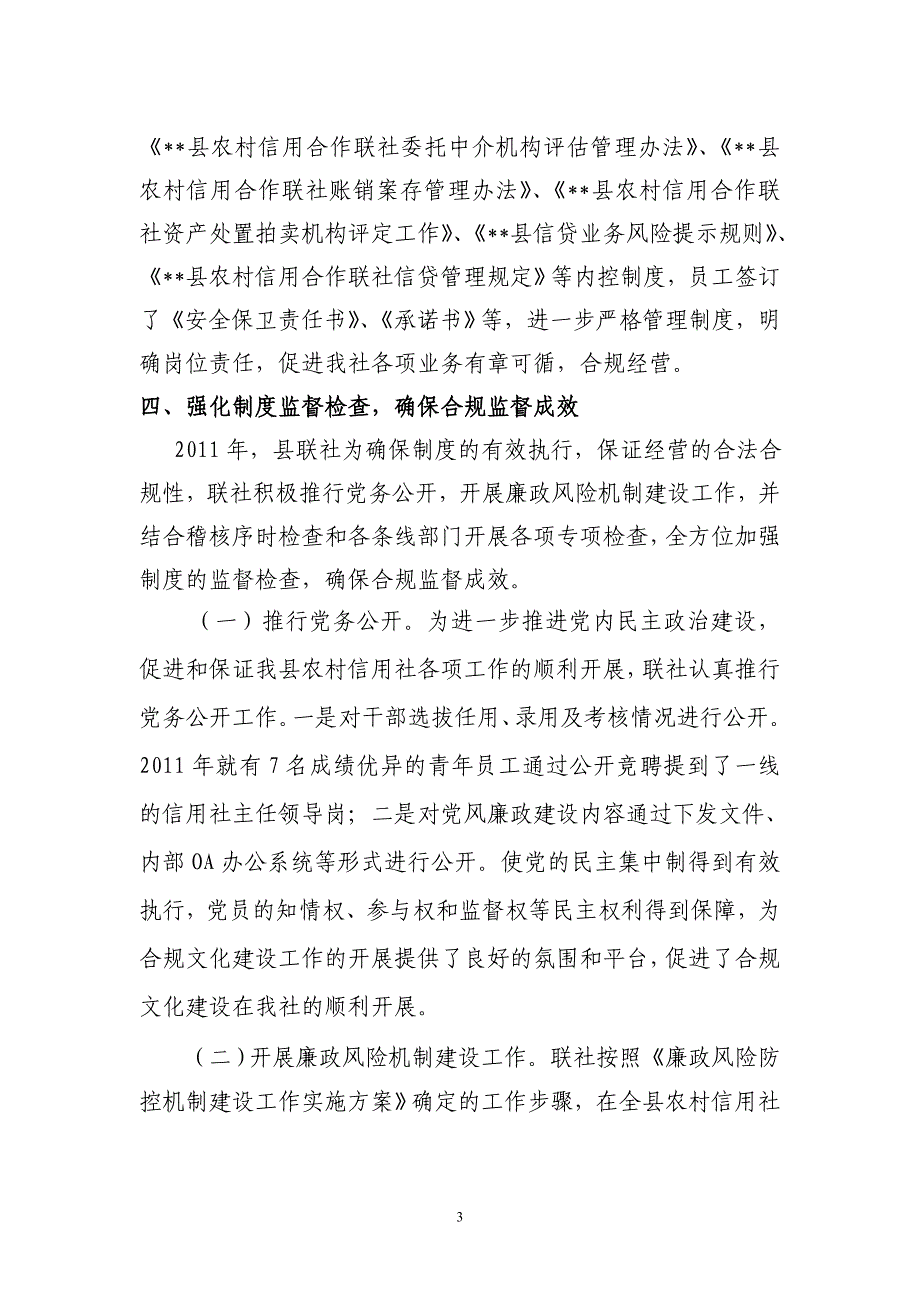 《**县农村信用合作联社委托中介机构评估管理办法》、《**县
农村信用合作联社账销案存管理办法》、《**县农村信用合作联
社资产处置拍卖机构评定工作》、《**县信贷业务风险提示规则》、
《**县农村信用合作联社信贷管理规定》等内控制度，员工签订
了《安全保卫责任书》、《承诺书》等，进一步严格管理制度，明
确岗位责任，促进我社各项业务有章可循，合规经营。
四、强化制度监督检查，确保合规监督成效
2011年，县联社为确保制度的有效执行，保证经营的合法合
规性，联社积极推行党务公开，开展廉政风险机制建设工作，并
结合稽核序时检查和各条线部门开展各项专项检查，全方位加强
制度的监督检查，确保合规监督成效。
（一）推行党务公开。为进一步推进党内民主政治建设，
促进和保证我县农村信用社各项工作的顺利开展，联社认真推行
党务公开工作。一是对干部选拔任用、录用及考核情况进行公开。
2011年就有7名成绩优异的青年员工通过公开竞聘提到了一线
的信用社主任领导岗；二是对党风廉政建设内容通过下发文件、
内部OA办公系统等形式进行公开。使党的民主集中制得到有效
执行，党员的知情权、参与权和监督权等民主权利得到保障，为
合规文化建设工作的开展提供了良好的氛围和平台，促进了合规
文化建设在我社的顺利开展。
（二）开展廉政风险机制建设工作。联社按照《廉政风险防
控机制建设工作实施方案》确定的工作步骤，在全县农村信用社
3